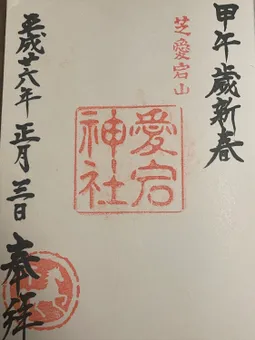 甲午歳新春
芝愛宕山
愛宕神社
平成廿六年正月三日
奉拝